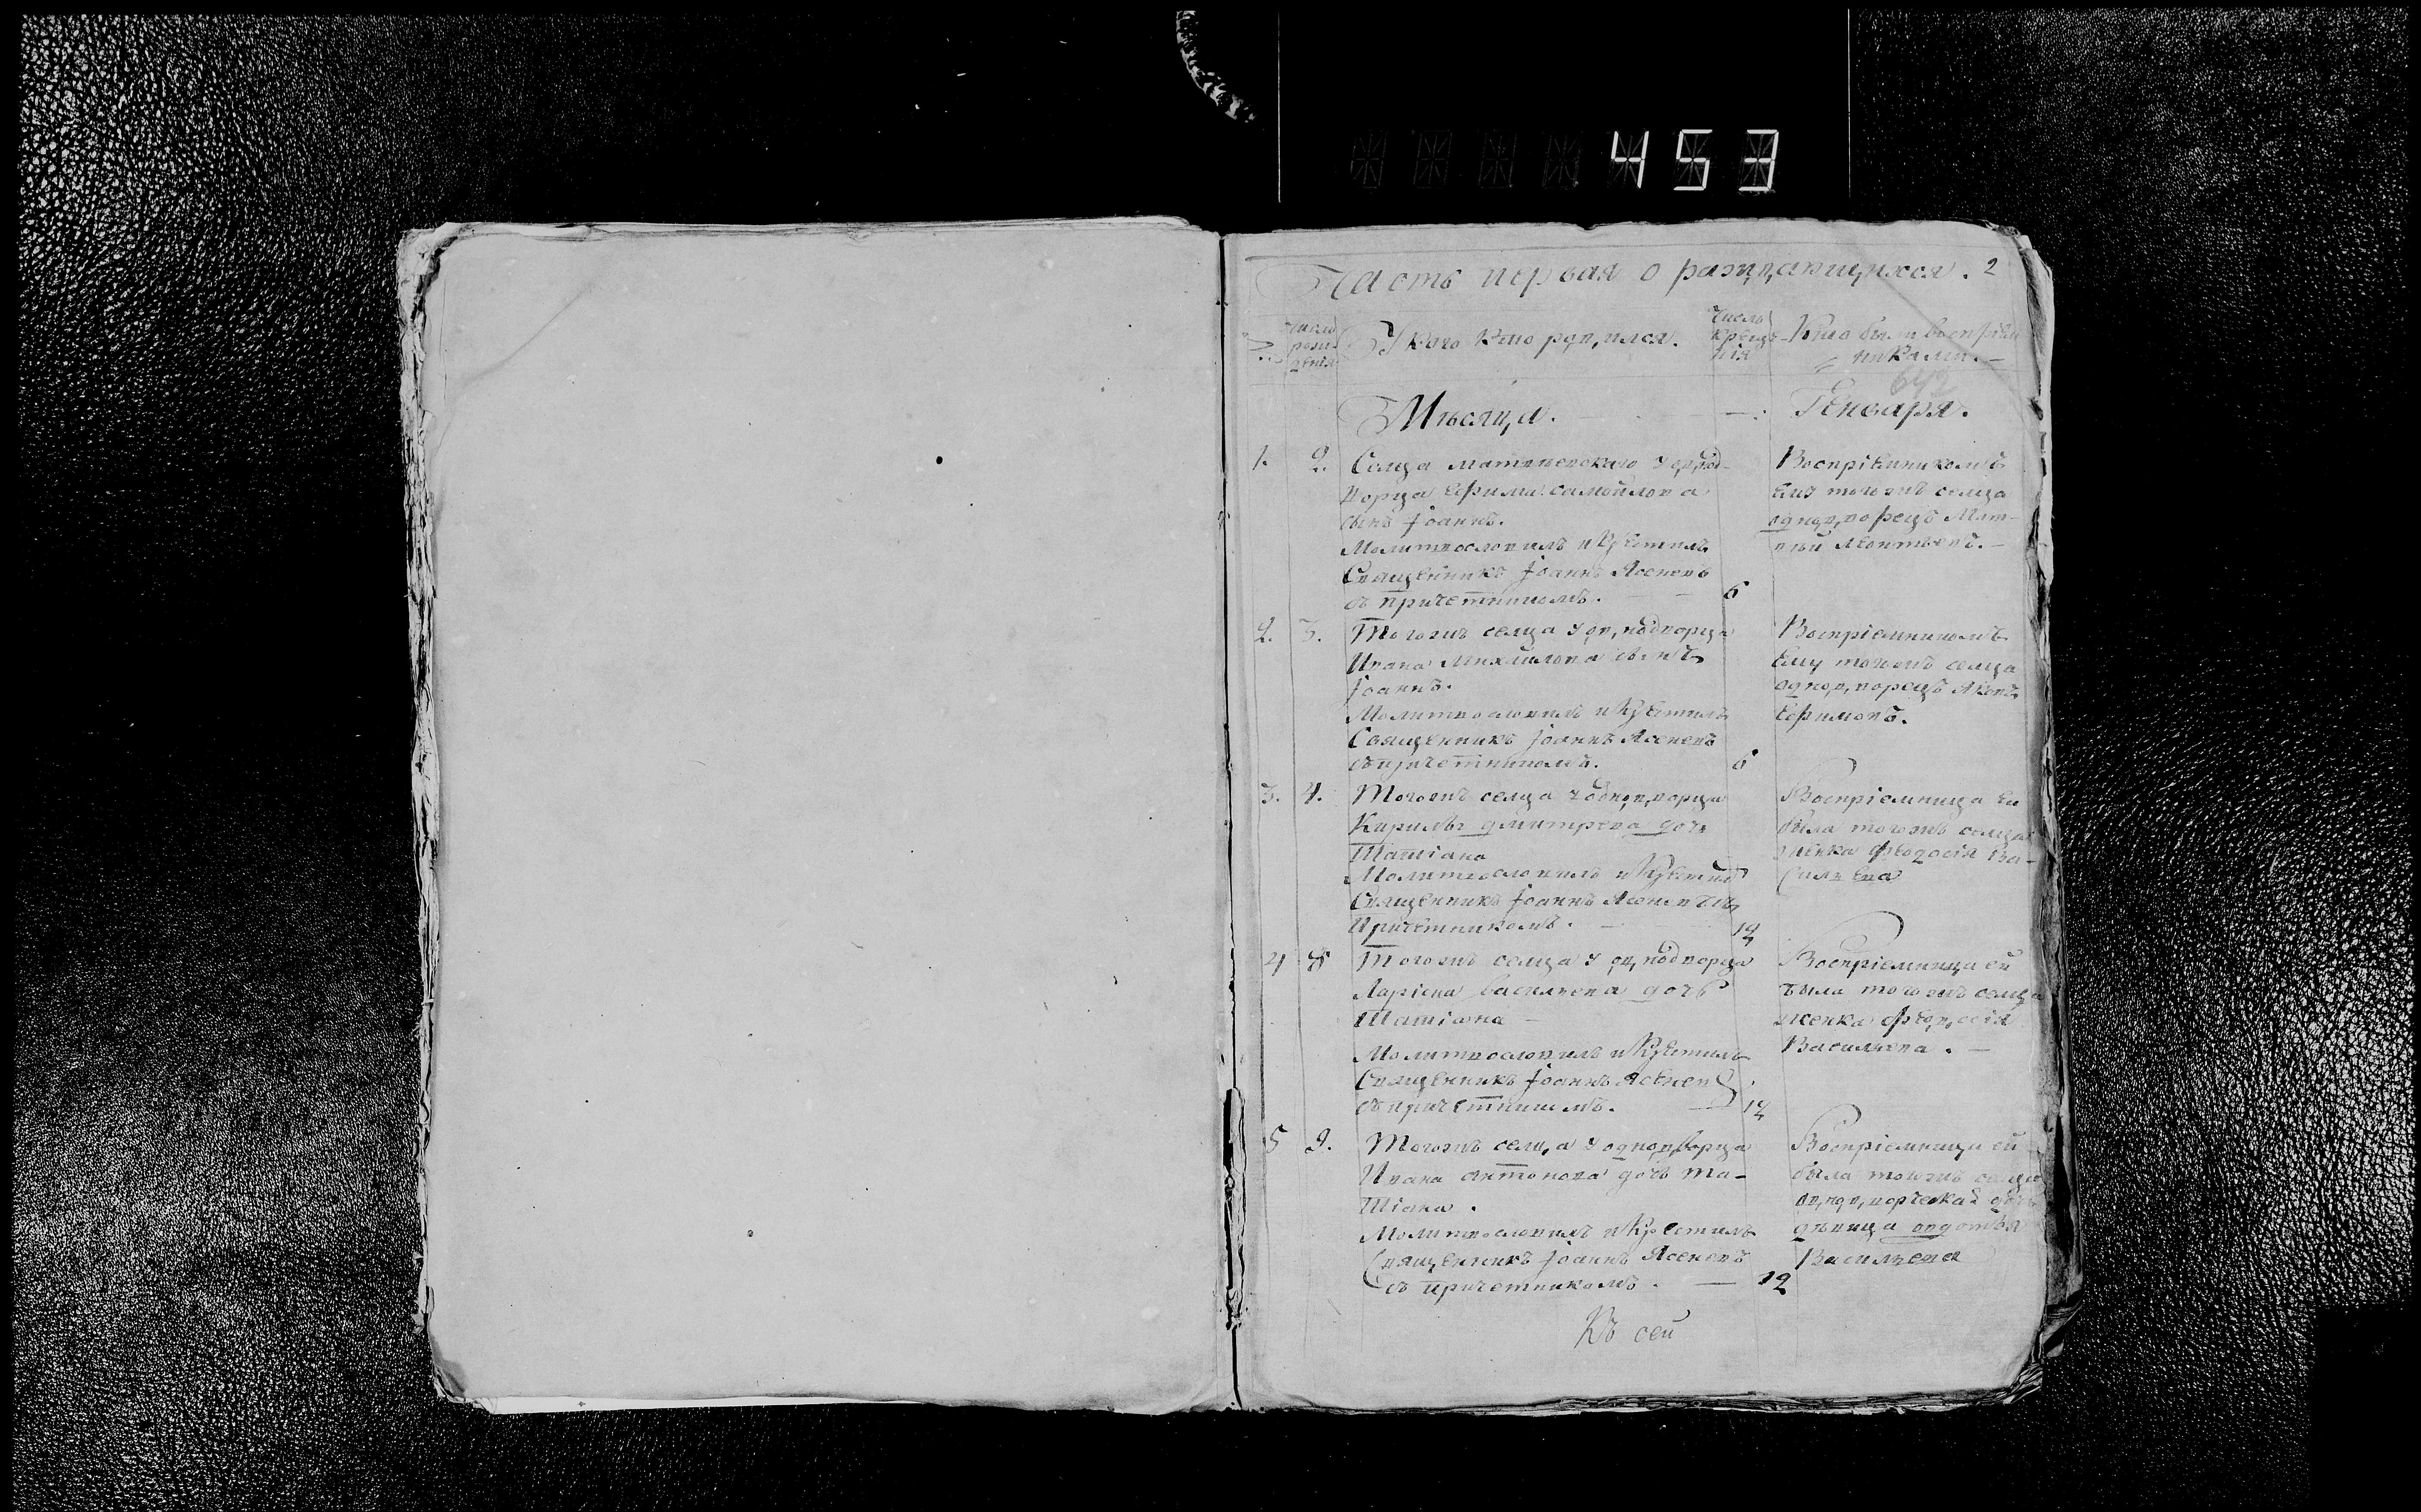 453
Часть первая о раждающихся. 2
Число рожденія
У кого кто родился.
Число крещенія
Кто были воспріемниками.
642
Мѣсяца. Генваря.
1. 2. Селца Матвѣевскаго у однод-
ворца Ефима Самойлова
сынъ Іоаннъ.
Молитвословилъ и крестилъ
Священникъ Іоаннъ Ясеневъ
съ причетникомъ. 6
Воспріемникомъ
ему тогожъ селца
однодворецъ Мат-
вѣй Леонтьевъ.
2. 3. Тогожъ селца у однодворца
Ивана Михайлова сынъ
Іоаннъ.
Молитвословилъ и крестилъ
Священникъ Іоаннъ Ясеневъ
съ причетникомъ. 6
Воспріемникомъ
ему тогожъ селца
однодворецъ Яковъ
Ефимовъ.
3. 4. Тогожъ селца у однодворца
Кирилы Дмитрева дочь
Татіана
Молитвословилъ и крестилъ
Священникъ Іоаннъ Ясеневъ съ
Причетникомъ. 12
Воспріемница ей
была тогожъ селца
женка Феодосія Ва-
сильева
4 8 Тогожъ селца у однодворца
Ларіона Васильева дочь
Татіана
Молитвословилъ и крестилъ
Священникъ Іоаннъ Ясеневъ
съ причетникомъ. 12
Воспріемница ей
была тогожъ селца
женка Феодосія
Васильева.
5 9. Тогожъ селца у однодворца
Ивана Антонова дочь Та-
тіана.
Молитвословилъ и крестилъ
Священникъ Іоаннъ Ясеневъ
съ причетникомъ. 12
Воспріемница ей
была тогожъ селца
однодворческая дочь
дѣвица Авдотья
Васильева
Къ сей